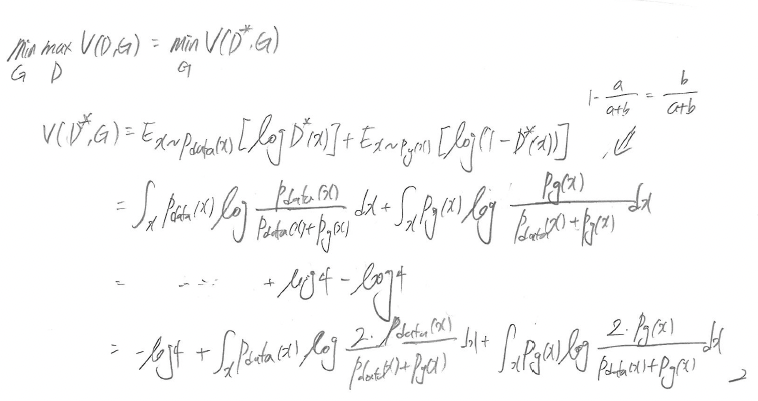 min max V(D,G) = min V(D*,G)
G D G
1 - a/(a+b) = b/(a+b)
V(D*,G) = E_{x~p_data(x)} [log D*(x)] + E_{x~p_g(x)} [log(1 - D*(x))]
= ∫_x p_data(x) log p_data(x)/(p_data(x)+p_g(x)) dx + ∫_x p_g(x) log p_g(x)/(p_data(x)+p_g(x)) dx
= ..... + log4 - log4
= -log4 + ∫_x p_data(x) log 2·p_data(x)/(p_data(x)+p_g(x)) dx + ∫_x p_g(x) log 2·p_g(x)/(p_data(x)+p_g(x)) dx